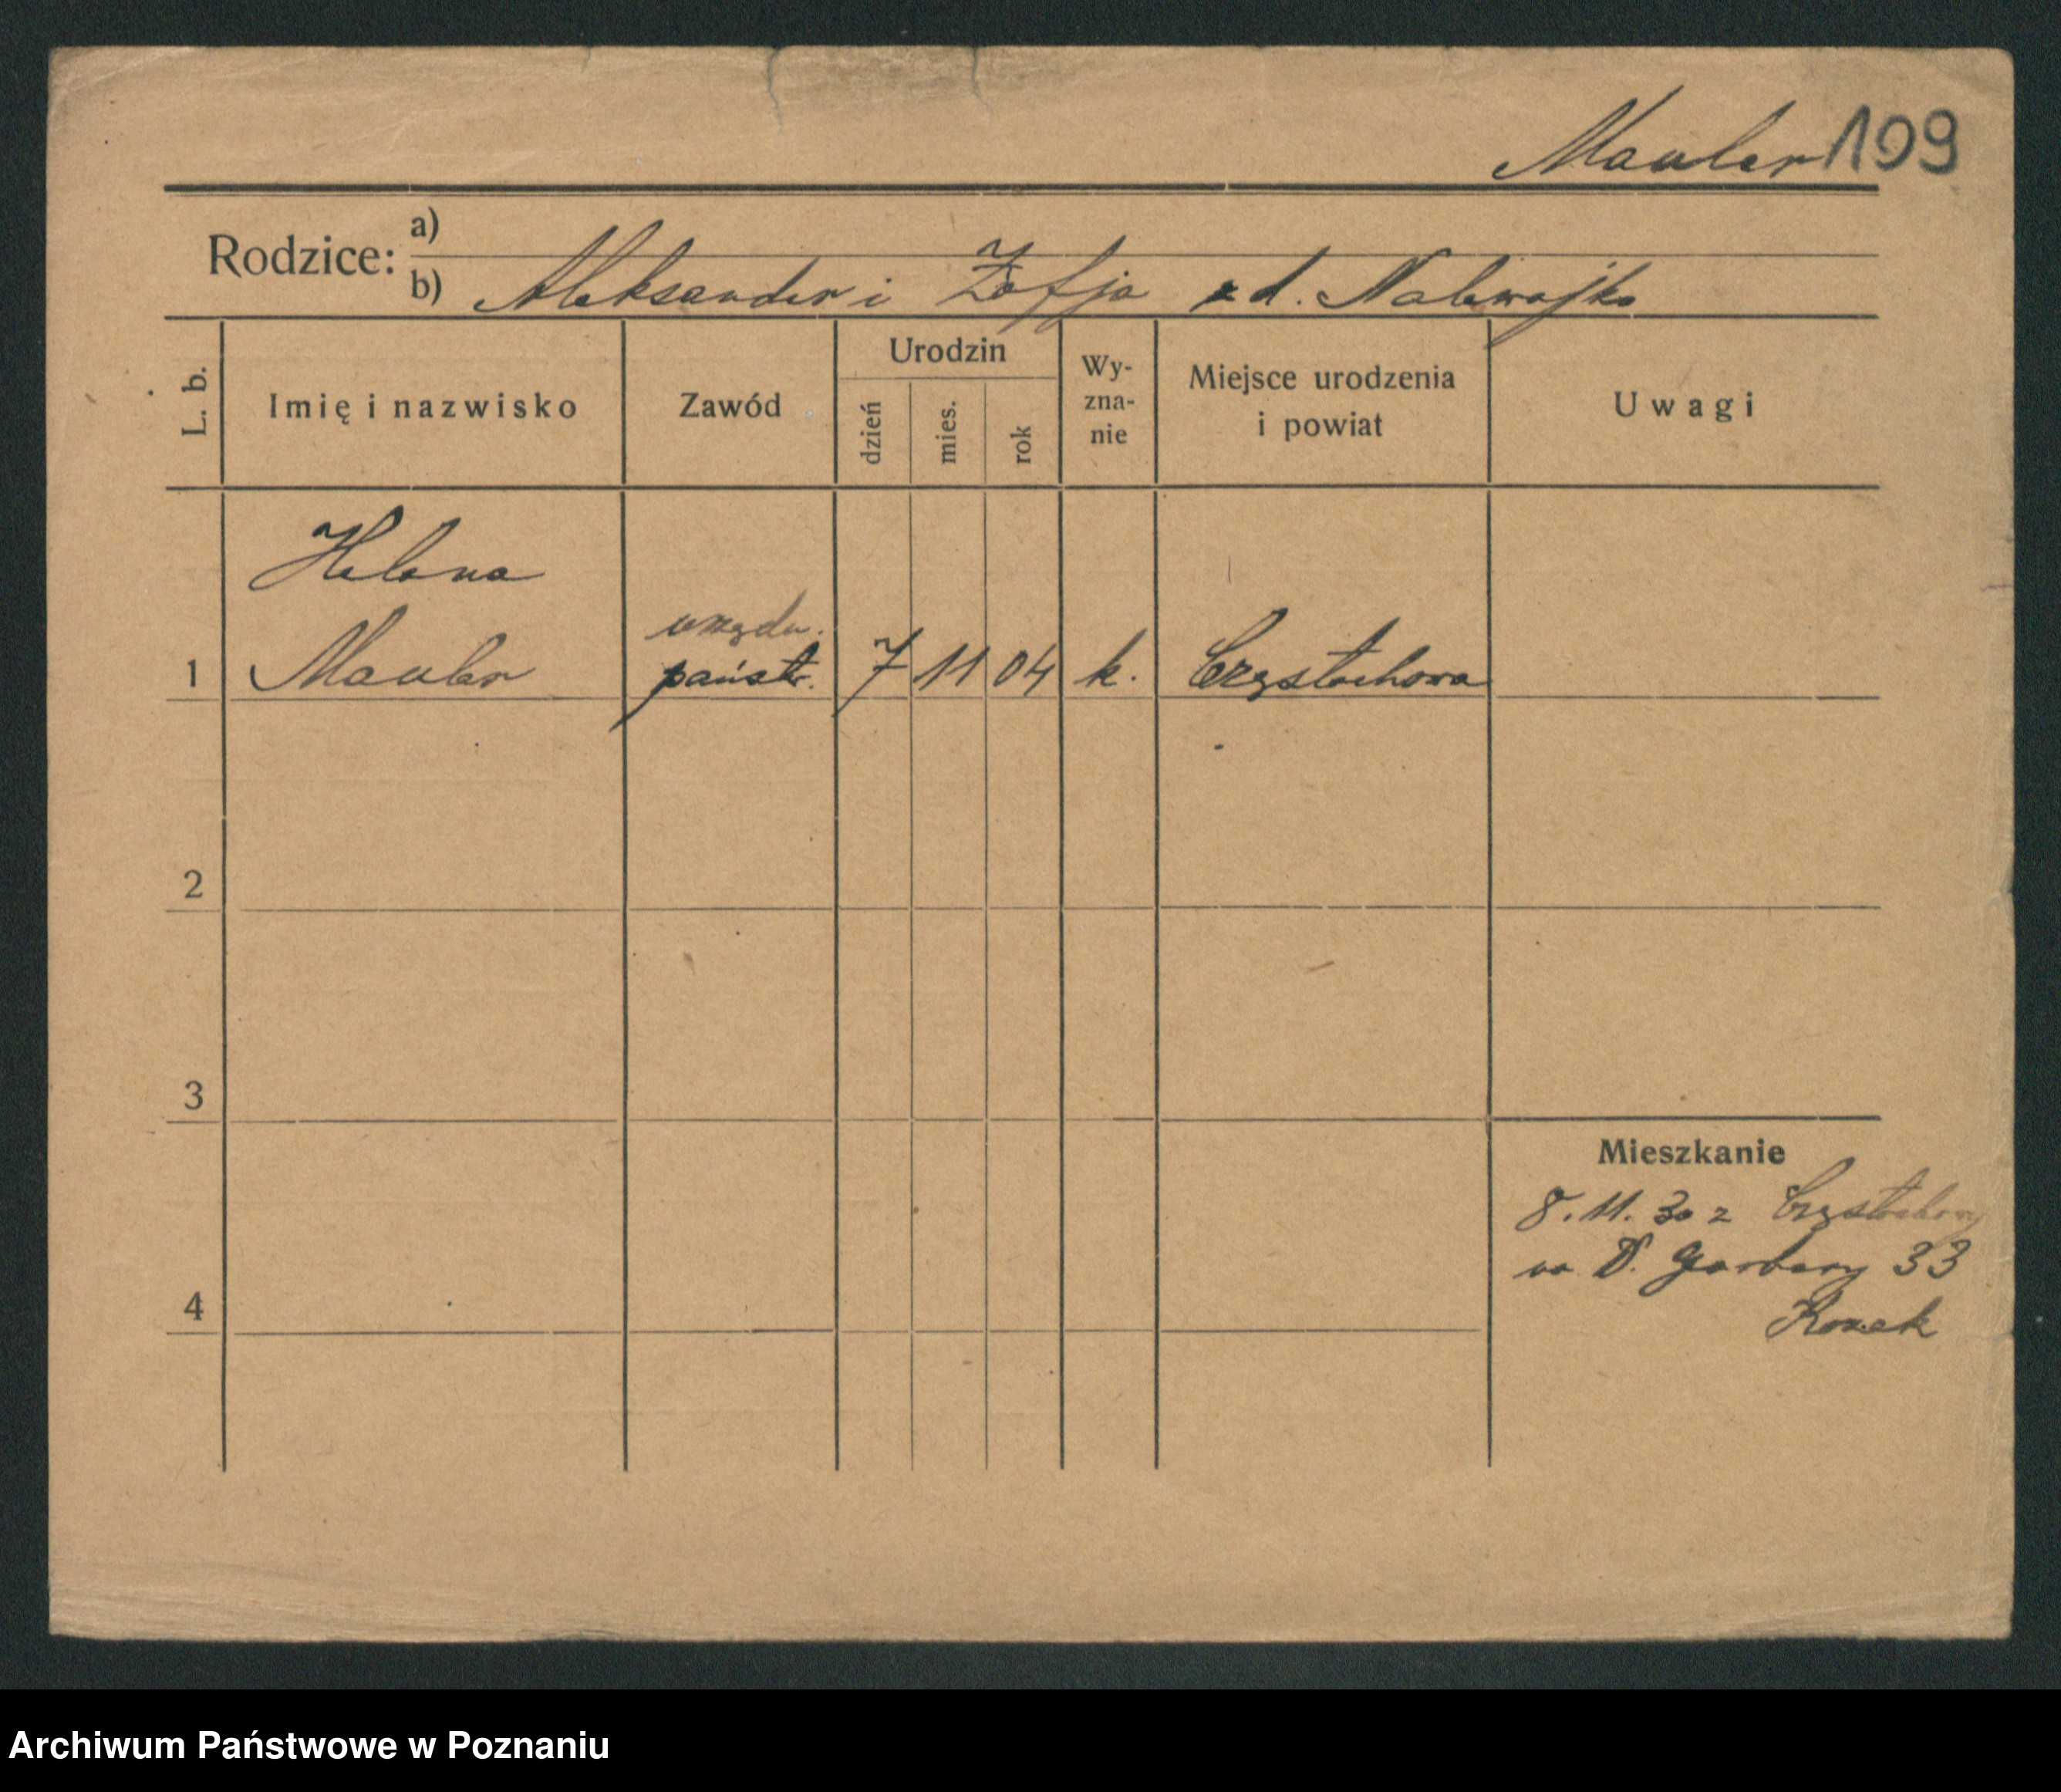 Mauler 109
Rodzice: a)
b) Aleksander i Zofja z d. Nalewajko
L. b.
Imię i nazwisko
Zawód
Urodzin
dzień
mies.
rok
Wy-
zna-
nie
Miejsce urodzenia
i powiat
Uwagi
Helena
urzędn.
1 Mauler państw. 7 11 04 k. Częstochowa
2
3
Mieszkanie
8. 11. 30 z Częstochowy
na W. Garbary 33
4
Kozak
Archiwum Państwowe w Poznaniu